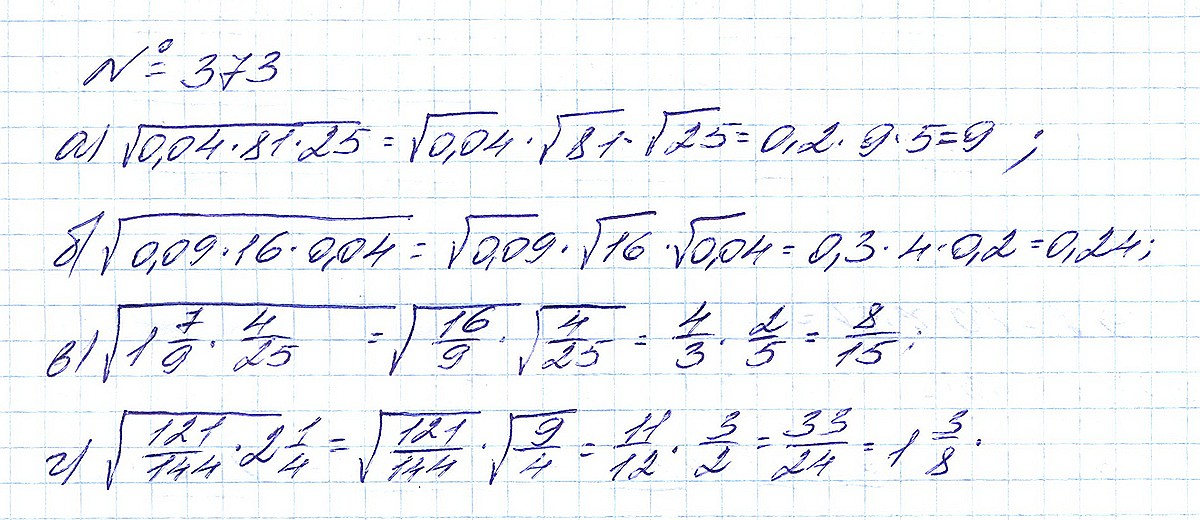 № 373
а) √0,04·81·25 = √0,04 · √81 · √25 = 0,2 · 9 · 5 = 9 ;
б) √0,09·16·0,04 = √0,09 · √16 · √0,04 = 0,3 · 4 · 0,2 = 0,24;
в) √1 7/9 · 4/25 = √16/9 · √4/25 = 4/3 · 2/5 = 8/15 ;
г) √121/144 · 2 1/4 = √121/144 · √9/4 = 11/12 · 3/2 = 33/24 = 1 3/8 .